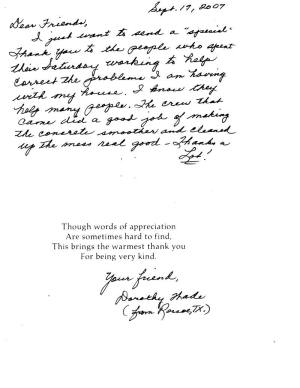 Sept. 19, 2007
Dear Friends,
I just want to send a "special"
Thank you to the people who spent
their Saturday working to help
correct the problems I am having
with my house. I know they
help many people. The crew that
came did a good job of making
the concrete smoother and cleaned
up the mess real good - Thanks a
Lot!
Though words of appreciation
Are sometimes hard to find,
This brings the warmest thank you
For being very kind.
Your friend,
Dorothy
(from Roscoe, TX.)